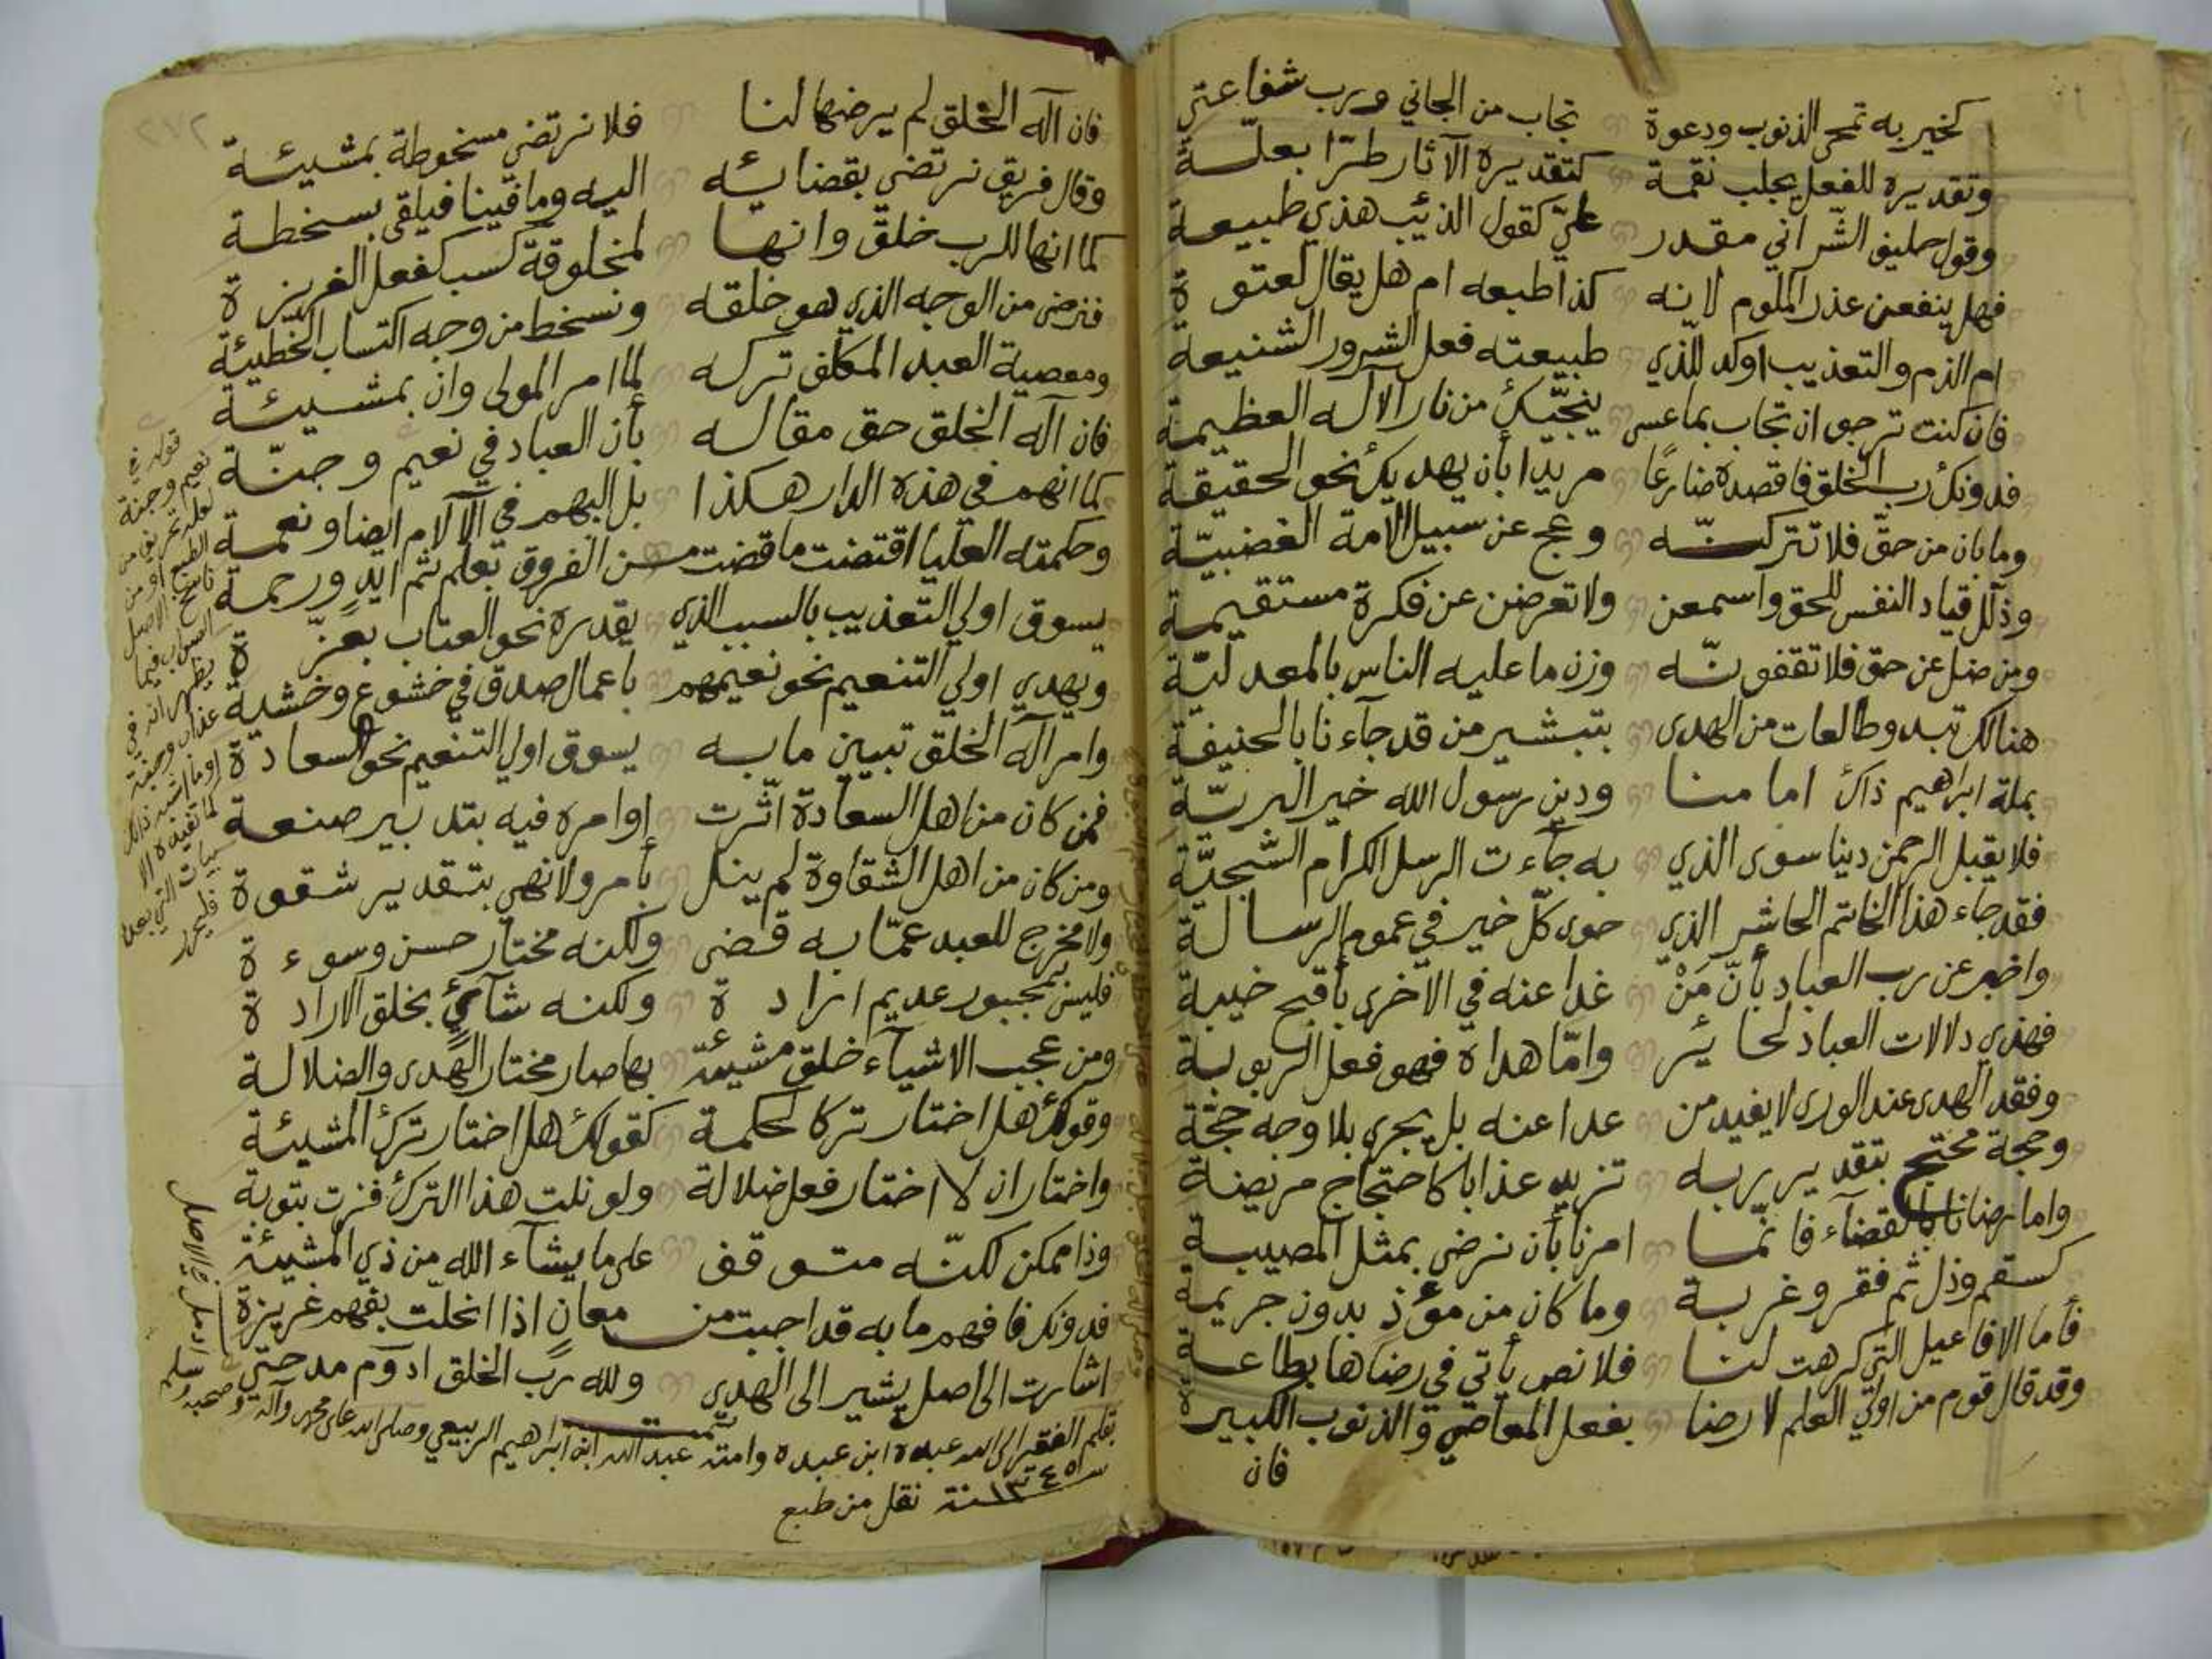 كخير به تمحى الذنوب ودعوة تجاب من الجاني ورب شفاعتي
وتقديره للفعل يجلب نقمة كتقديره الآثار طرّا بعلّة
وقول حليف الشّر اني مقدر عليّ كقول الذئب هذي طبيعة
فهل ينفعن عذر الملوم لانه كذا طبعه ام هل يقال لعتوة
ام الذم والتعذيب اوكد للّذي طبيعته فعل الشرور الشنيعة
فان كنت ترجو ان تجاب بما عسى ينجّيك من نار الاله العظيمة
فدونك رب الخلق فاقصده ضارعًا مريدا بأن يهديك نحو الحقيقة
وما بان من حقّ فلا تتركنّه وعج عن سبيل الامة الغضبيّة
وذلّل قياد النفس للحق واسمعن ولا تعرضن عن فكرة مستقيمة
ومن ضل عن حق فلا تقفونّه وزن ما عليه الناس بالمعدليّة
هنالك تبدو طالعات من الهدى بتبشير من قد جآء نا بالحنيفة
بملة ابراهيم ذاك امامنا ودين رسول الله خير البريّة
فلا يقبل الرحمن دينا سوى الذي به جآءت الرسل الكرام السّجيّة
فقد جاء هذا الخاتم الحاشر الذي حوى كلّ خير في عموم الرسالة
واخبر عن رب العباد بأنّ مَنْ غدا عنه في الاخرى بأقبح خيبة
فهذي دلالات العباد لحائر وامّا هداه فهو فعل الربوبية
وفقد الهدى عند الورى لا يفيد من عدا عنه بل يجري بلا وجه حجّة
وحجة محتج بتقدير ربه تزيد عذابا كاحتجاج مريضة
واما رضانا بالقضآء فانّما امرنا بأن نرضى بمثل المصيبة
كسقم وذل ثم فقر وغربة وما كان من مؤذ بدون جريمة
فأما الافاعيل التي كرهت لنا فلا نص يأتي في رضاها بطاعة
وقد قال قوم من اولي العلم لا رضا بفعل المعاصي والذنوب الكبيرة
فان
فان اله الخلق لم يرضها لنا فلا نرتضي مسخوطة بمشيئة
وقال فريق نرتضي بقضائه اليه وما فينا فيلقى بسخطة
كما انها للرب خلق وانها لمخلوقة كسب كفعل الغريزة
فنرضى من الوجه الذي هو خلقه ونسخط من وجه اكتساب الخطيئة
ومعصية العبد المكلف تركه لما امر المولى وان بمشيئة
فان اله الخلق حق مقاله بأن العباد في نعيم وجنّة
كما انهم في هذه الدار هكذا بل البهم في الآلام ايضا ونعمة
وحكمته العليا اقتضت ما قضت من الفروق بعلم ثم ايدٍ ورحمة
يسوق اولي التعذيب بالسبب الذي يقدره نحو العتاب بعزّة
ويهدي اولي التنعيم نحو نعيمهم باعمال صدق في خشوع وخشية
وامر اله الخلق تبيين ما به يسوق اولي التنعيم نحو السعادة
فمن كان من اهل السعادة اثّرت اوامره فيه بتدبير صنعة
ومن كان من اهل الشقاوة لم ينل بأمر ولا نهي بتقدير شقوة
ولا مخرج للعبد عمّا به قضى ولكنه مختار حسن وسوءة
فليس بمجبور عديم ارادة ولكنه شآئي بخلق الارادة
ومن عجب الاشيآء خلق مشيئة بها صار مختار الهدى والضلالة
وقولك هل اختار تركا لحكمة كقولك هل اختار ترك المشيئة
واختار ان لا اختار فعل ضلالة ولو نلت هذا الترك فزت بتوبة
وذا ممكن لكنّه متوقف على ما يشآء الله من ذي المشيئة
فدونك فافهم ما به قد اجبت من معانٍ اذا انحلّت بفهم غريزة
اشارت الى اصل يشير الى الهدى ولله رب الخلق ادوم مدحتي
تمت
بقلم الفقير الى الله عبده ابن عبده وامته عبد الله ابن ابراهيم الربيعي وصلى الله على محمد وآله وصحبه وسلم
سنة ١٣٤٥ نقل من طبع
قوله في
نعيم وجنة
لعله تحريف من
الطبع او من
ناسخ الاصل
يظهر انه في
فليحرر